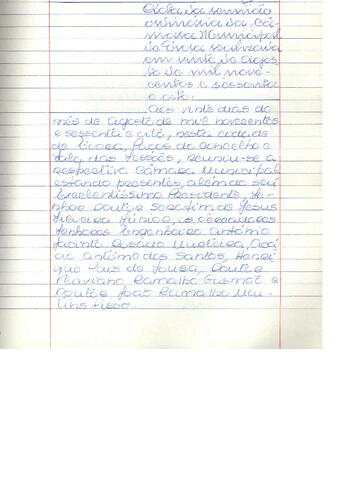 Acta da reunião
ordinária da Câ-
mara Municipal
de Évora realizada
em vinte de Agos-
to de mil nove-
centos e sessenta
e oito:
Aos vinte dias do
mês de Agosto de mil novecentos
e sessenta e oito, nesta cidade
de Évora, Paços do Concelho e
sala das sessões, reuniu-se a
respectiva Câmara Municipal
estando presentes, além do seu
Excelentíssimo Presidente, Se-
nhor Doutor Serafim de Jesus
Silveira Júnior, os vereadores
Senhores Engenheiro António
Jacinto Rosado Murteira,
António dos Santos, Henri-
que Pais de Sousa, Doutor
Mariano Ramalho Gusmão e
Doutor João Ramalho Mar-
tins